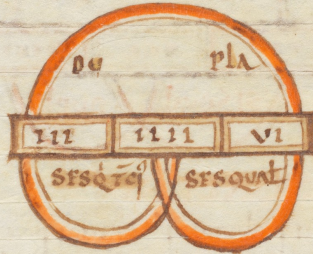 DU PLA
III IIII VI
SESQ̇TC̄I SESQUAL̄T